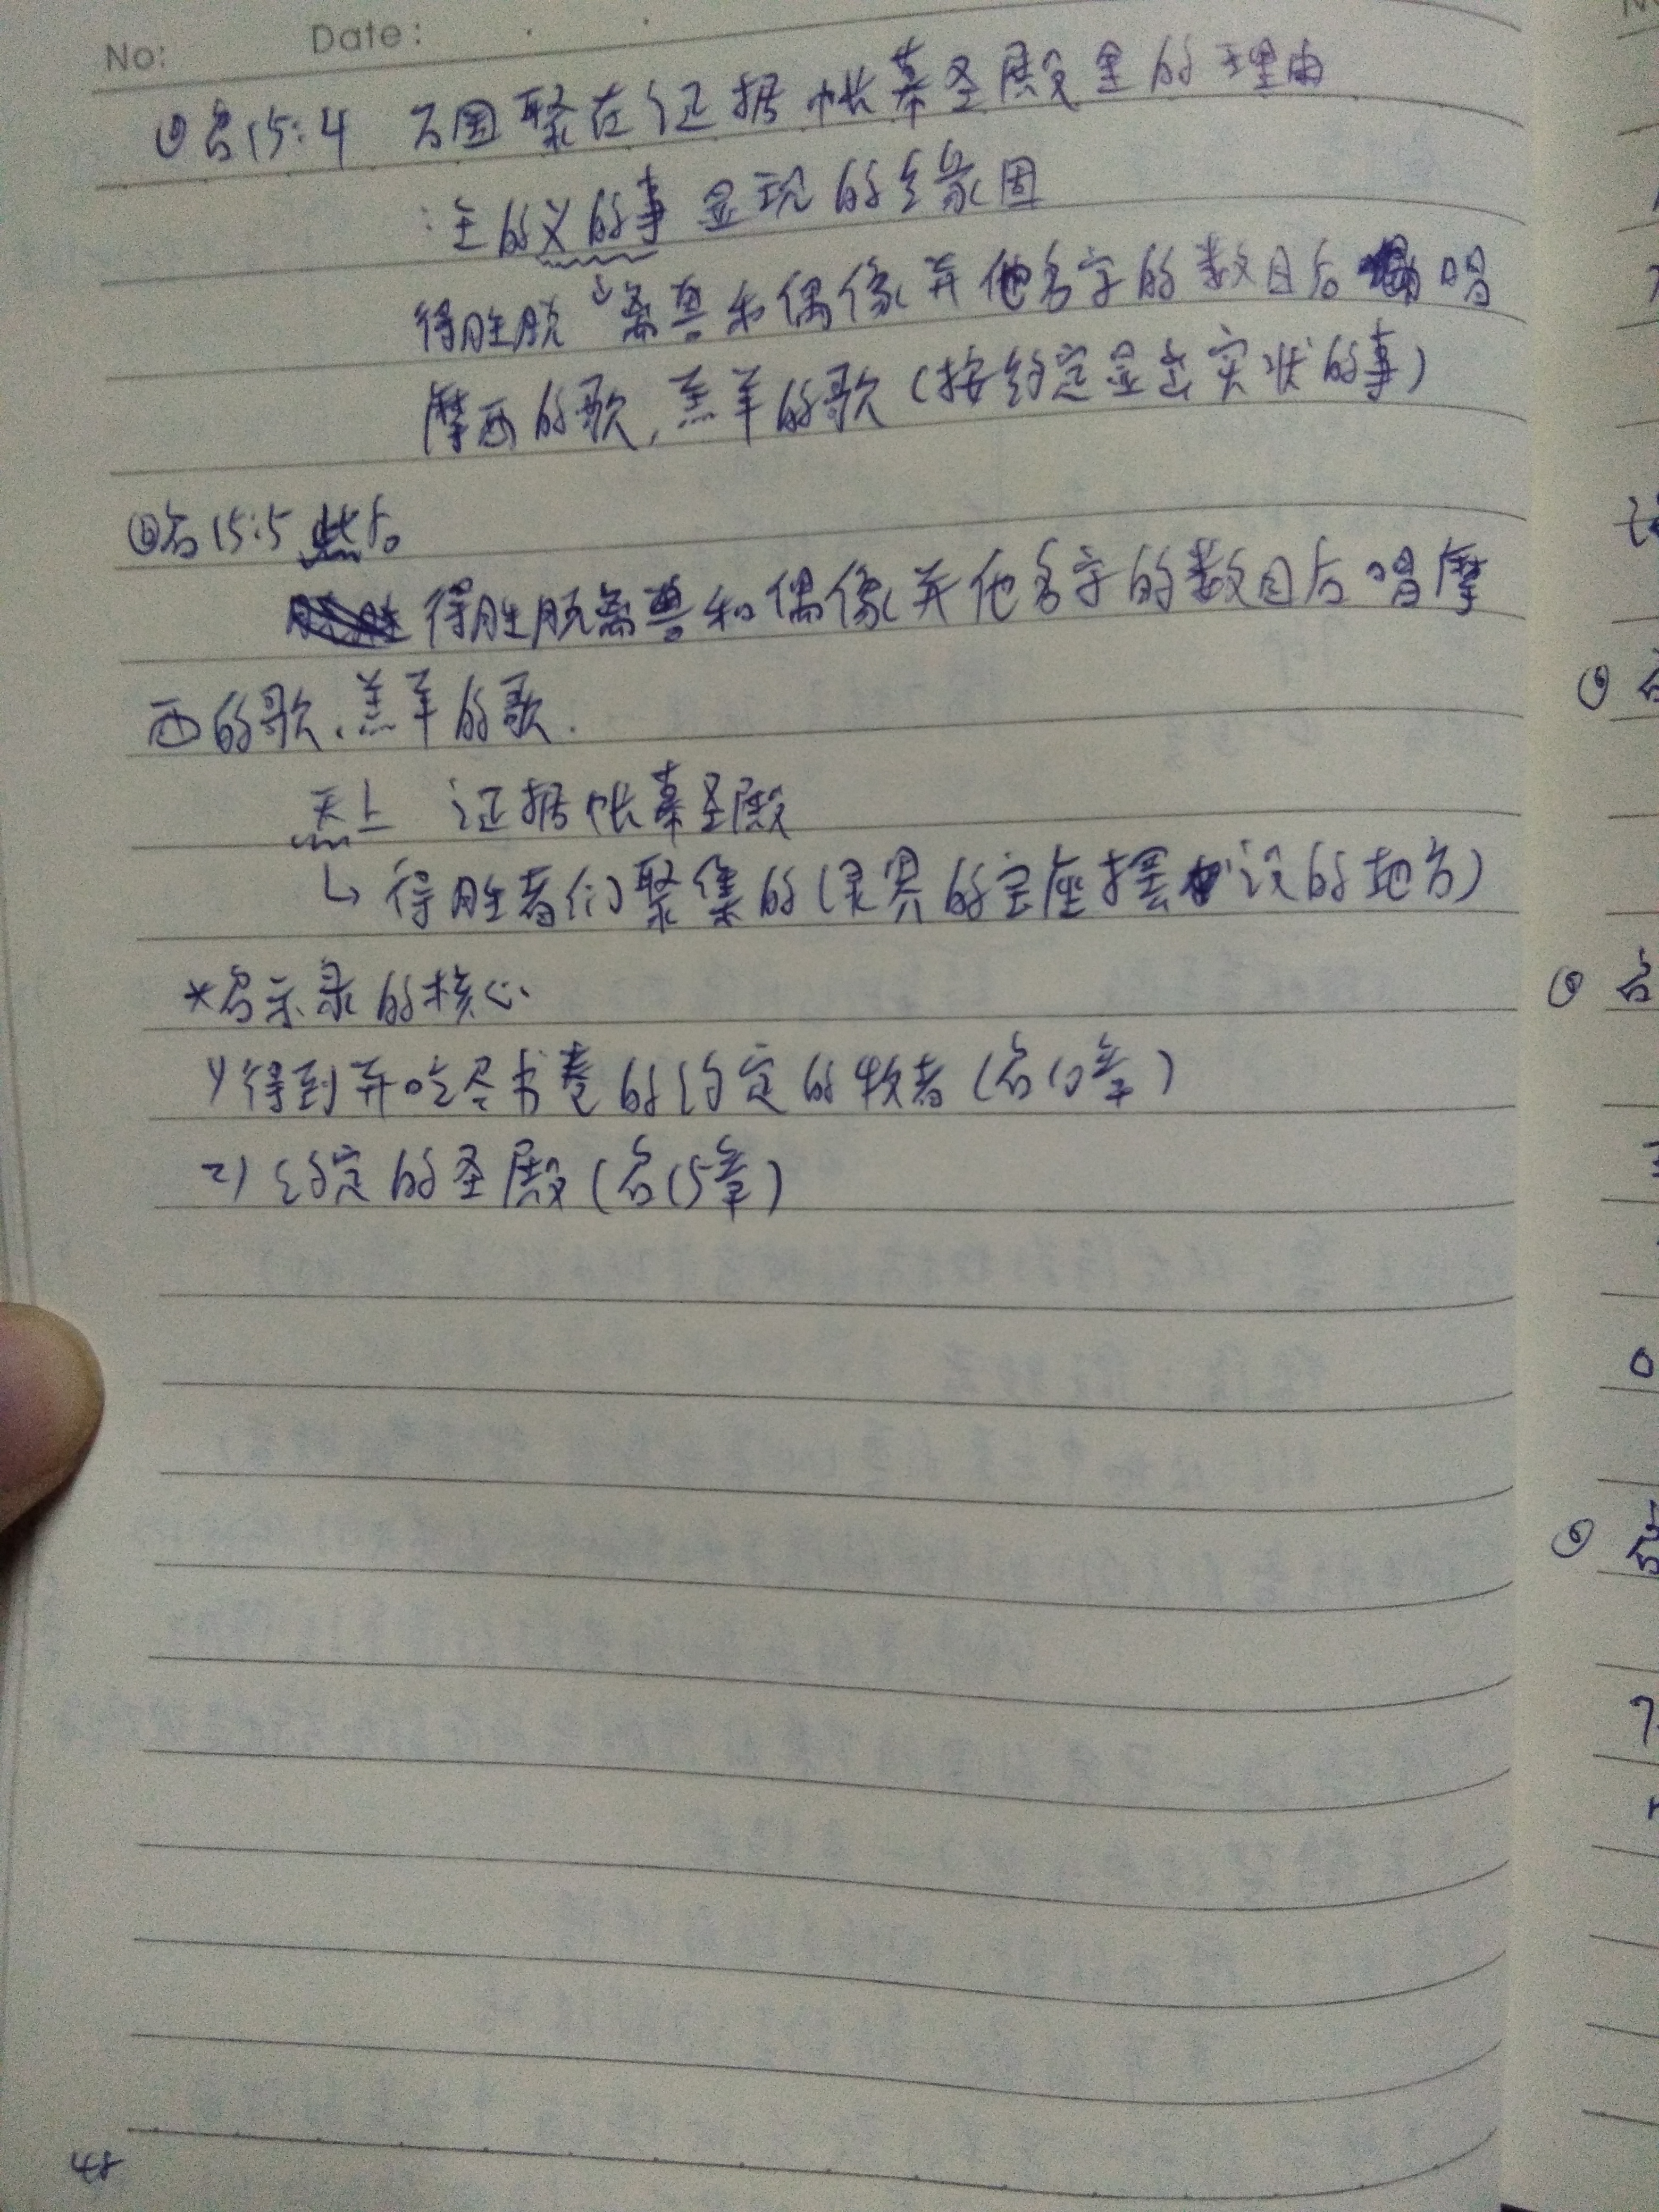 No: Date:
启15:4 万国聚在证据帐幕圣殿里的理由
:主的义的事 显现的缘固
得胜脱离兽和偶像并他名字的数目后 唱
摩西的歌,羔羊的歌(按约定显出实状的事)
启15:5 此后
得胜脱离兽和偶像并他名字的数目后唱摩
西的歌、羔羊的歌.
天上 证据帐幕圣殿
↳得胜者们聚集的(灵界的宝座摆设的地方)
*启示录的核心
1)得到并吃尽书卷的约定的牧者(启10章)
2)约定的圣殿(启15章)
48